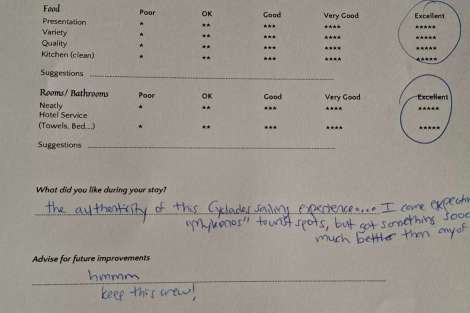 Food Poor OK Good Very Good Excellent
Presentation * ** *** **** *****
Variety * ** *** **** *****
Quality * ** *** **** *****
Kitchen (clean) * ** *** **** *****
Suggestions
Rooms/ Bathrooms Poor OK Good Very Good Excellent
Neatly * ** *** **** *****
Hotel Service
(Towels, Bed...) * ** *** **** *****
Suggestions
What did you like during your stay?
the authenticity of this Cyclades sailing experience.... I came
"Mykonos" tourist spots, but got something sooo
much better than any of
Advise for future improvements
hmmm
keep this crew!